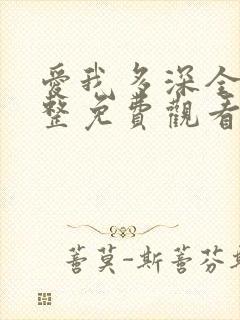 愛我多深全
整免費觀看
蓍莫-斯蓍芬斯